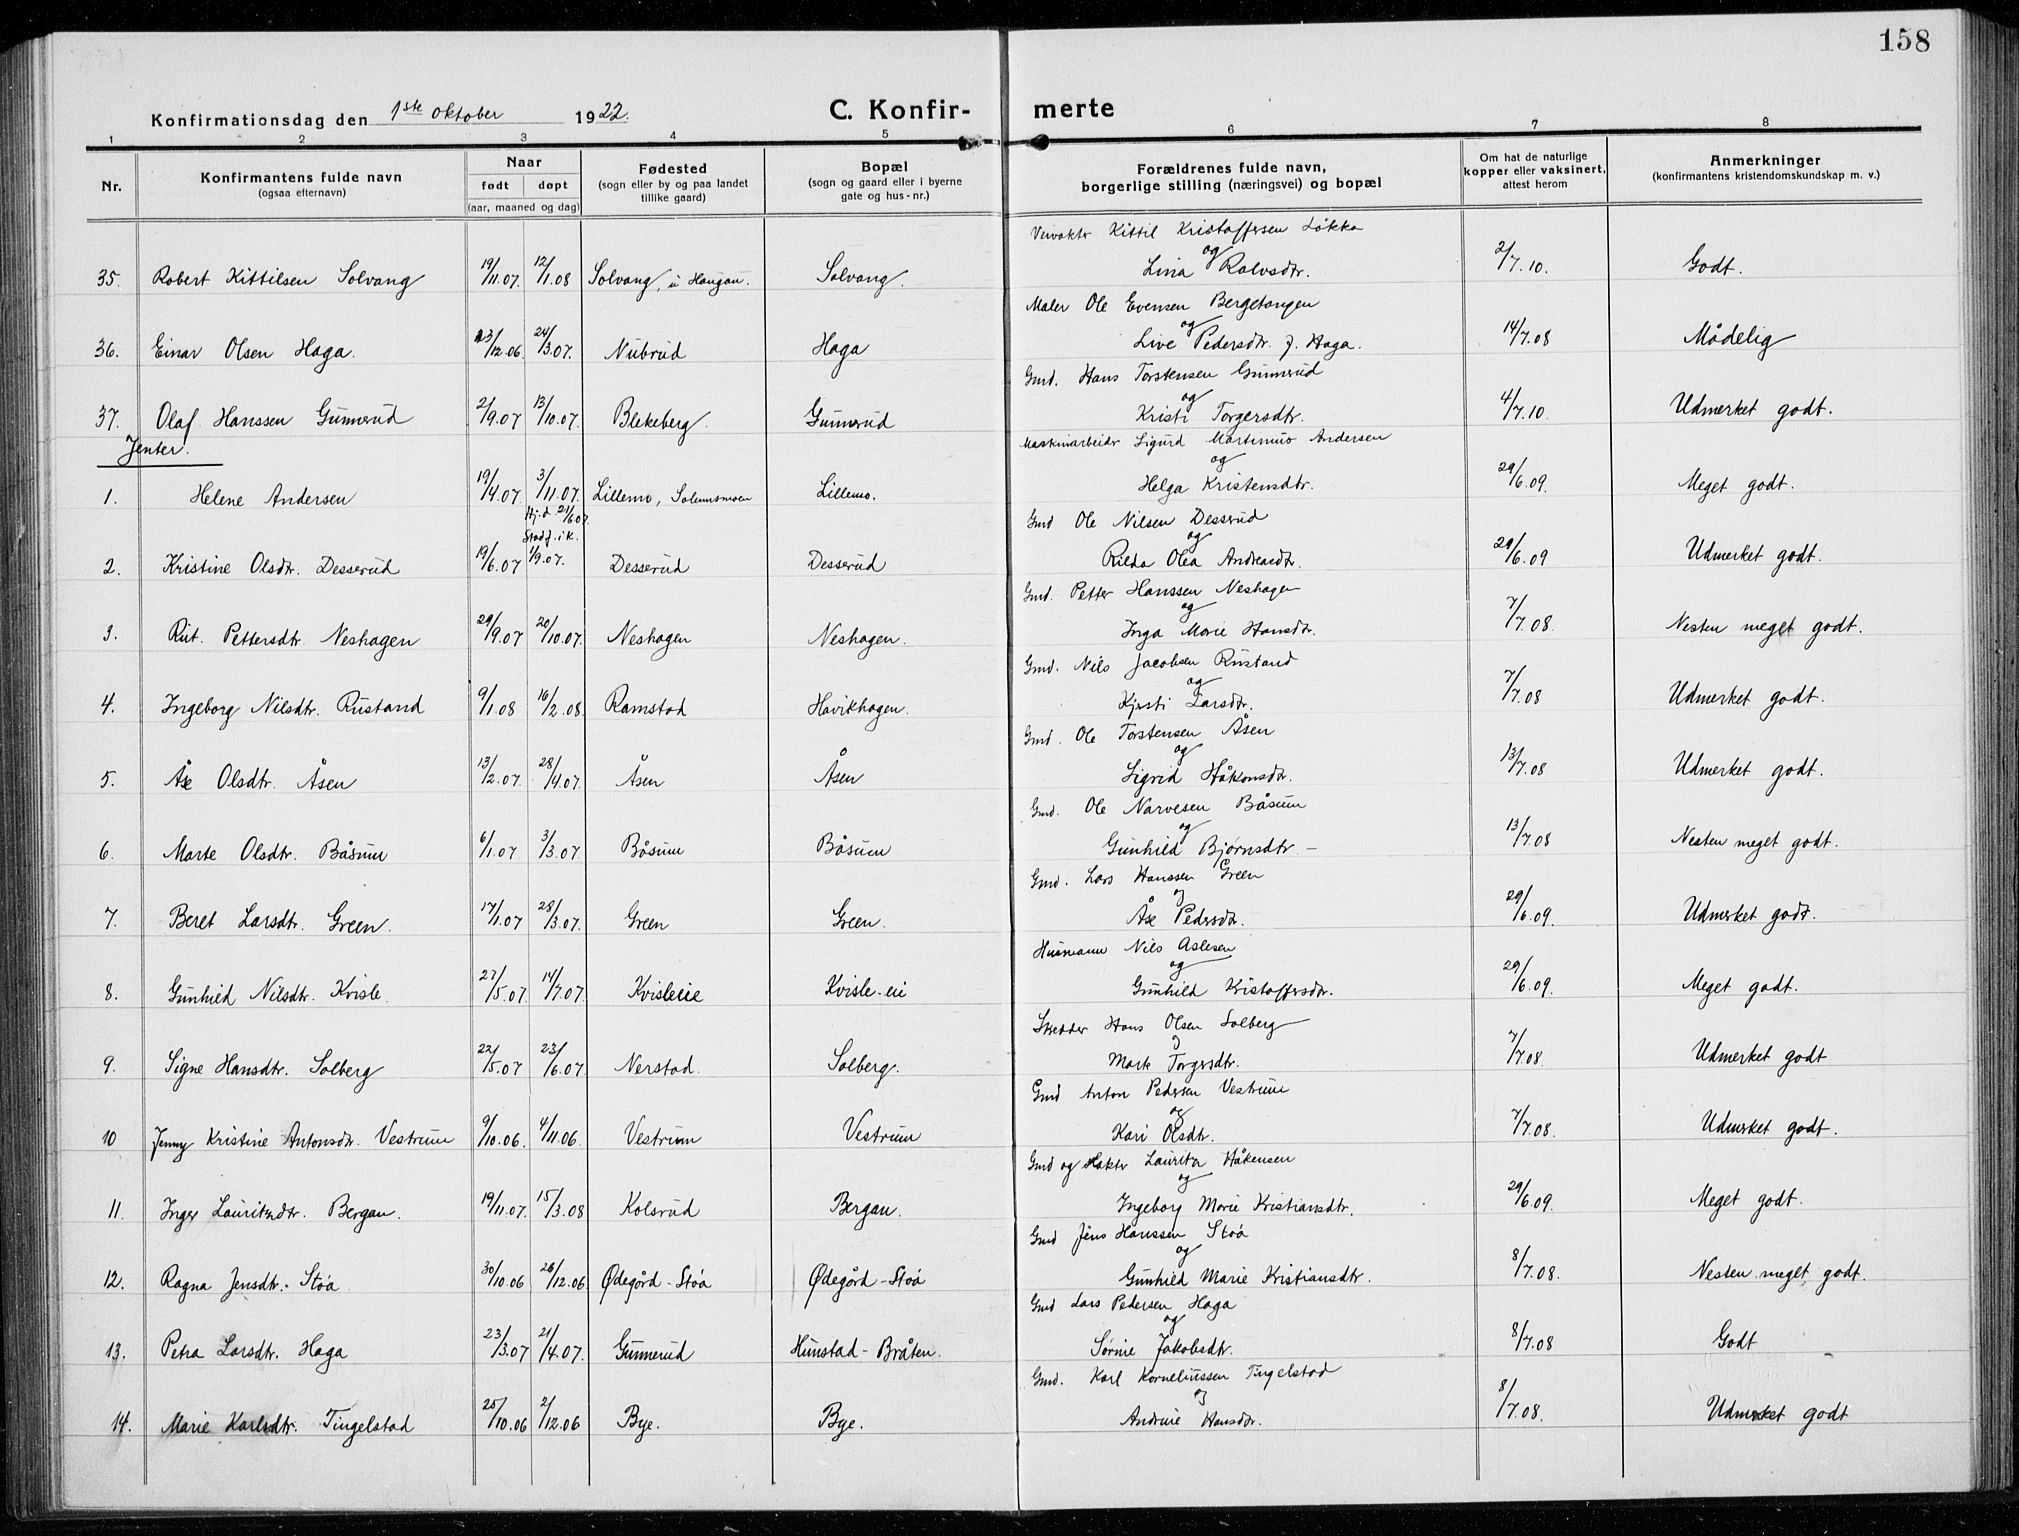 158
Konfirmationsdag den 1ste oktober 1922. C. Konfirmerte
1 2 3 4 5 6 7 8
Nr. | Konfirmantens fulde navn (ogsaa efternavn) | Naar født døpt (aar, maaned og dag) | Fødested (sogn eller by og paa landet tillike gaard) | Bopæl (sogn og gaard eller i byerne gate og hus-nr.) | Forældrenes fulde navn, borgerlige stilling (næringsvei) og bopæl | Om hat de naturlige kopper eller vaksinert, attest herom | Anmerkninger (konfirmantens kristendomskundskap m. v.)
Veivokter Kittil Kristoffersen Løkka
og
35. Robert Kittilsen Solvang 19/11.07. 12/1.08 Solvang, u Haugan. Solvang. Lina Rolvsdtr. 2/7.10. Godt.
Maler Ole Evensen Bergetangen
og
36. Einar Olsen Haga. 23/12.06 24/3.07. Nubrud Haga Live Pedersdtr. f. Haga. 14/7.08 Mådelig
Gmd. Hans Torstensen Gunnerud
og
37. Olaf Hanssen Gunnerud 2/9.07 13/10.07. Blekeberg. Gunnerud Kristi Torgersdtr. 4/7.10. Udmerket godt.
Jenter.
Maskinarbeider Sigurd Martinius Andersen
og
1. Helene Andersen 19/4.07. 3/11.07. Lillemo, Solumsmoen Lillemo. Helga Kristensdtr. 29/6.09. Meget godt.
Hj.d. 21/6 07.
Stadf. i k.
Gmd Ole Nilsen Desserud
og
2. Kristine Olsdtr. Desserud 19/6.07 1/9.07. Desserud Desserud Rilda Olea Andreasdtr. 29/6.09 Udmerket godt.
Gmd. Petter Hanssen Neshagen
og
3. Rut. Pettersdtr. Neshagen 29/9.07 20/10.07. Neshagen Neshagen. Inga Marie Hansdtr. 7/7.08. Nesten meget godt.
Gmd. Nils Jacobsen Rustand
og
4. Ingeborg Nilsdtr. Rustand 9/1.08 16/2.08. Ramstad Havikhagen. Kjersti Larsdtr. 7/7.08 Udmerket godt.
Gmd. Ole Torstensen Åsen
og
5. Åse Olsdtr. Åsen 13/2.07. 28/4.07. Åsen Åsen Sigrid Håkonsdtr. 13/7.08 Udmerket godt.
Gmd. Ole Narvesen Båsum
og
6. Marte Olsdtr. Båsum 6/1.07 3/3.07. Båsum Båsum Gunhild Bjørnsdtr. – 13/7.08 Nesten meget godt.
Gmd. Lars Hanssen Green
og
7. Beret Larsdtr. Green. 17/1.07 28/3.07. Green Green. Åse Pedersdtr. 29/6.09. Udmerket godt.
Husmann Nils Aslesen
og
8. Gunhild Nilsdtr. Kvisle 27/5.07. 14/7.07 Kvisleeie Kvisle-eie Gunhild Kristoffersdtr. 29/6.09. Meget godt.
Skredder Hans Olsen Solberg
og
9. Signe Hansdtr. Solberg 22/5.07 23/6.07 Nerstad. Solberg. Marte Torgersdtr. 7/7.08. Udmerket godt
Gmd Anton Pedersen Vestrum
og
10 Jenny Kristine Antonsdtr. Vestrum 9/10.06. 4/11.06. Vestrum Vestrum Kari Olsdtr. 7/7.08. Udmerket godt.
Gmd og Lauritz Håkensen
og
11. Inger Lauritzdtr. Bergan. 19/11.07. 15/3.08 Kolsrud Bergan. Ingeborg Marie Kristiansdtr. 29/6.09. Meget godt.
Gmd Jens Hanssen Støa
og
12. Ragna Jensdtr. Støa 30/10.06 26/12.06 Ødegård-Støa Ødegård-Støa Gunhild Marie Kristiansdtr. 8/7.08. Nesten meget godt.
Gmd Lars Pedersen Haga
og
13. Petra Larsdtr. Haga 23/3.07 21/4.07. Gunnerud Hunstad-Bråten. Sørine Jakobsdtr. 8/7.08 Godt
Gmd. Karl Korneliussen Tingelstad
og
14. Marie Karlsdtr. Tingelstad 25/10.06 2/12.06 Bye. Bye. Andrine Hansdtr. 8/7.08. Udmerket godt